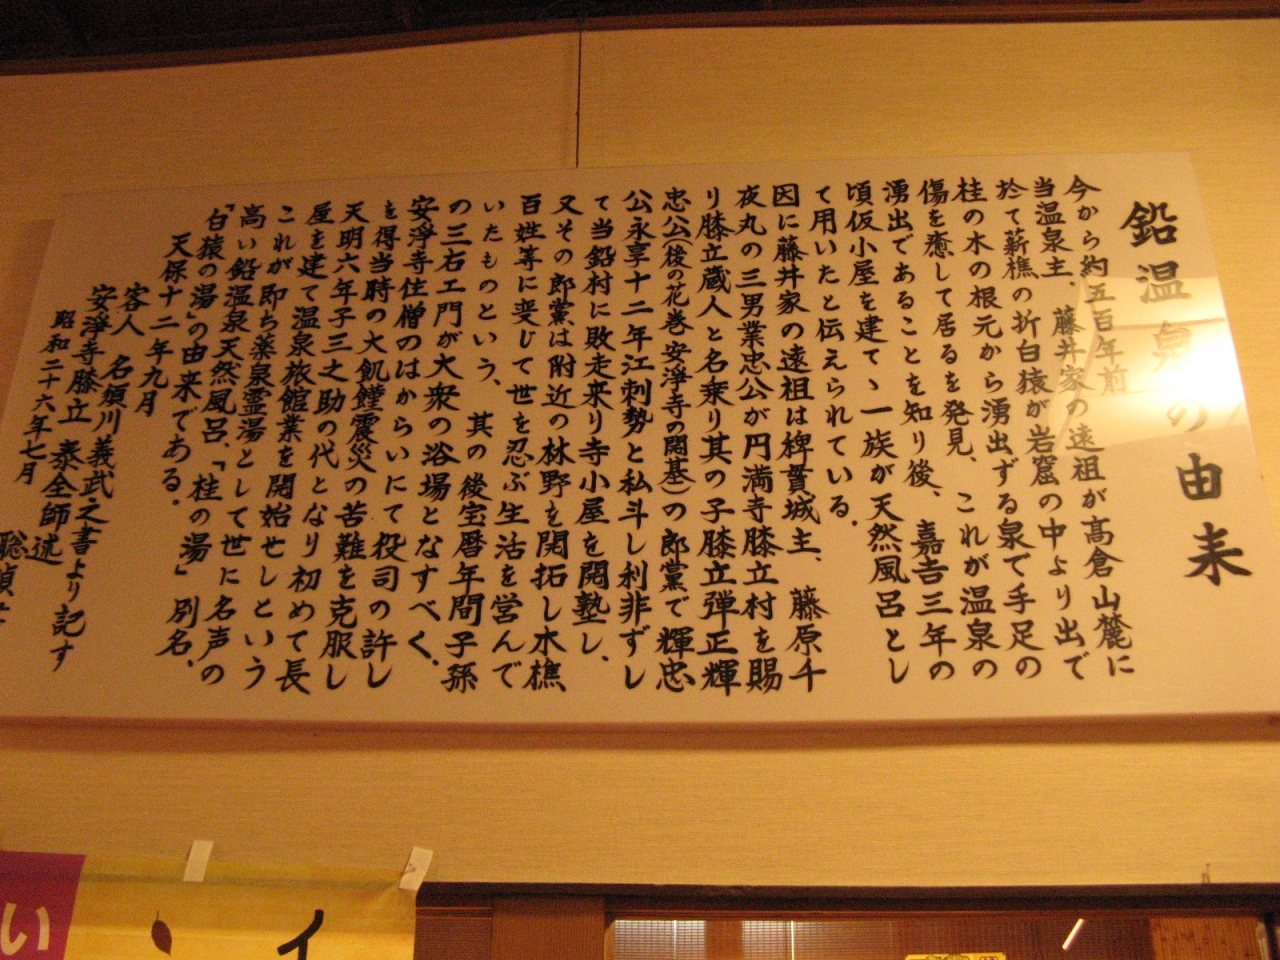 鉛温泉の由来
今から約五百年前
当温泉主、藤井家の遠祖が高倉山麓に
於て薪樵の折白猿が岩窟の中より出で
桂の木の根元から湧出ずる泉で手足の
傷を癒して居るを発見、これが温泉の
湧出であることを知り後、嘉吉三年の
頃仮小屋を建てゝ一族が天然風呂とし
て用いたと伝えられている.
因に藤井家の遠祖は稗貫城主、藤原千
夜丸の三男業忠公が円満寺膝立村を賜
り膝立蔵人と名乗り其の子膝立弾正輝
忠公(後の花巻安淨寺の開基)の郎黨で輝忠
公永享十二年江刺勢と私斗し利非ずし
て当鉛村に敗走来り寺小屋を開塾し、
又その郎黨は附近の林野を開拓し木樵
百姓等に変じて世を忍ぶ生活を営んで
いたものという、其の後宝暦年間子孫
の三右エ門が大衆の浴場となすべく.
安淨寺住僧のはからいにて役司の許し
を得当時の大飢饉震災の苦難を克服し
天明六年子三之助の代となり初めて長
屋を建て温泉旅館業を開始せしという
これが即ち薬泉霊湯として世に名声の
高い鉛温泉天然風呂、「桂の湯」別名、
「白猿の湯」の由来である.
天保十二年九月
客人 名須川義武之書より記す
安淨寺膝立 泰全師述
昭和二十六年七月
聡
い
イ